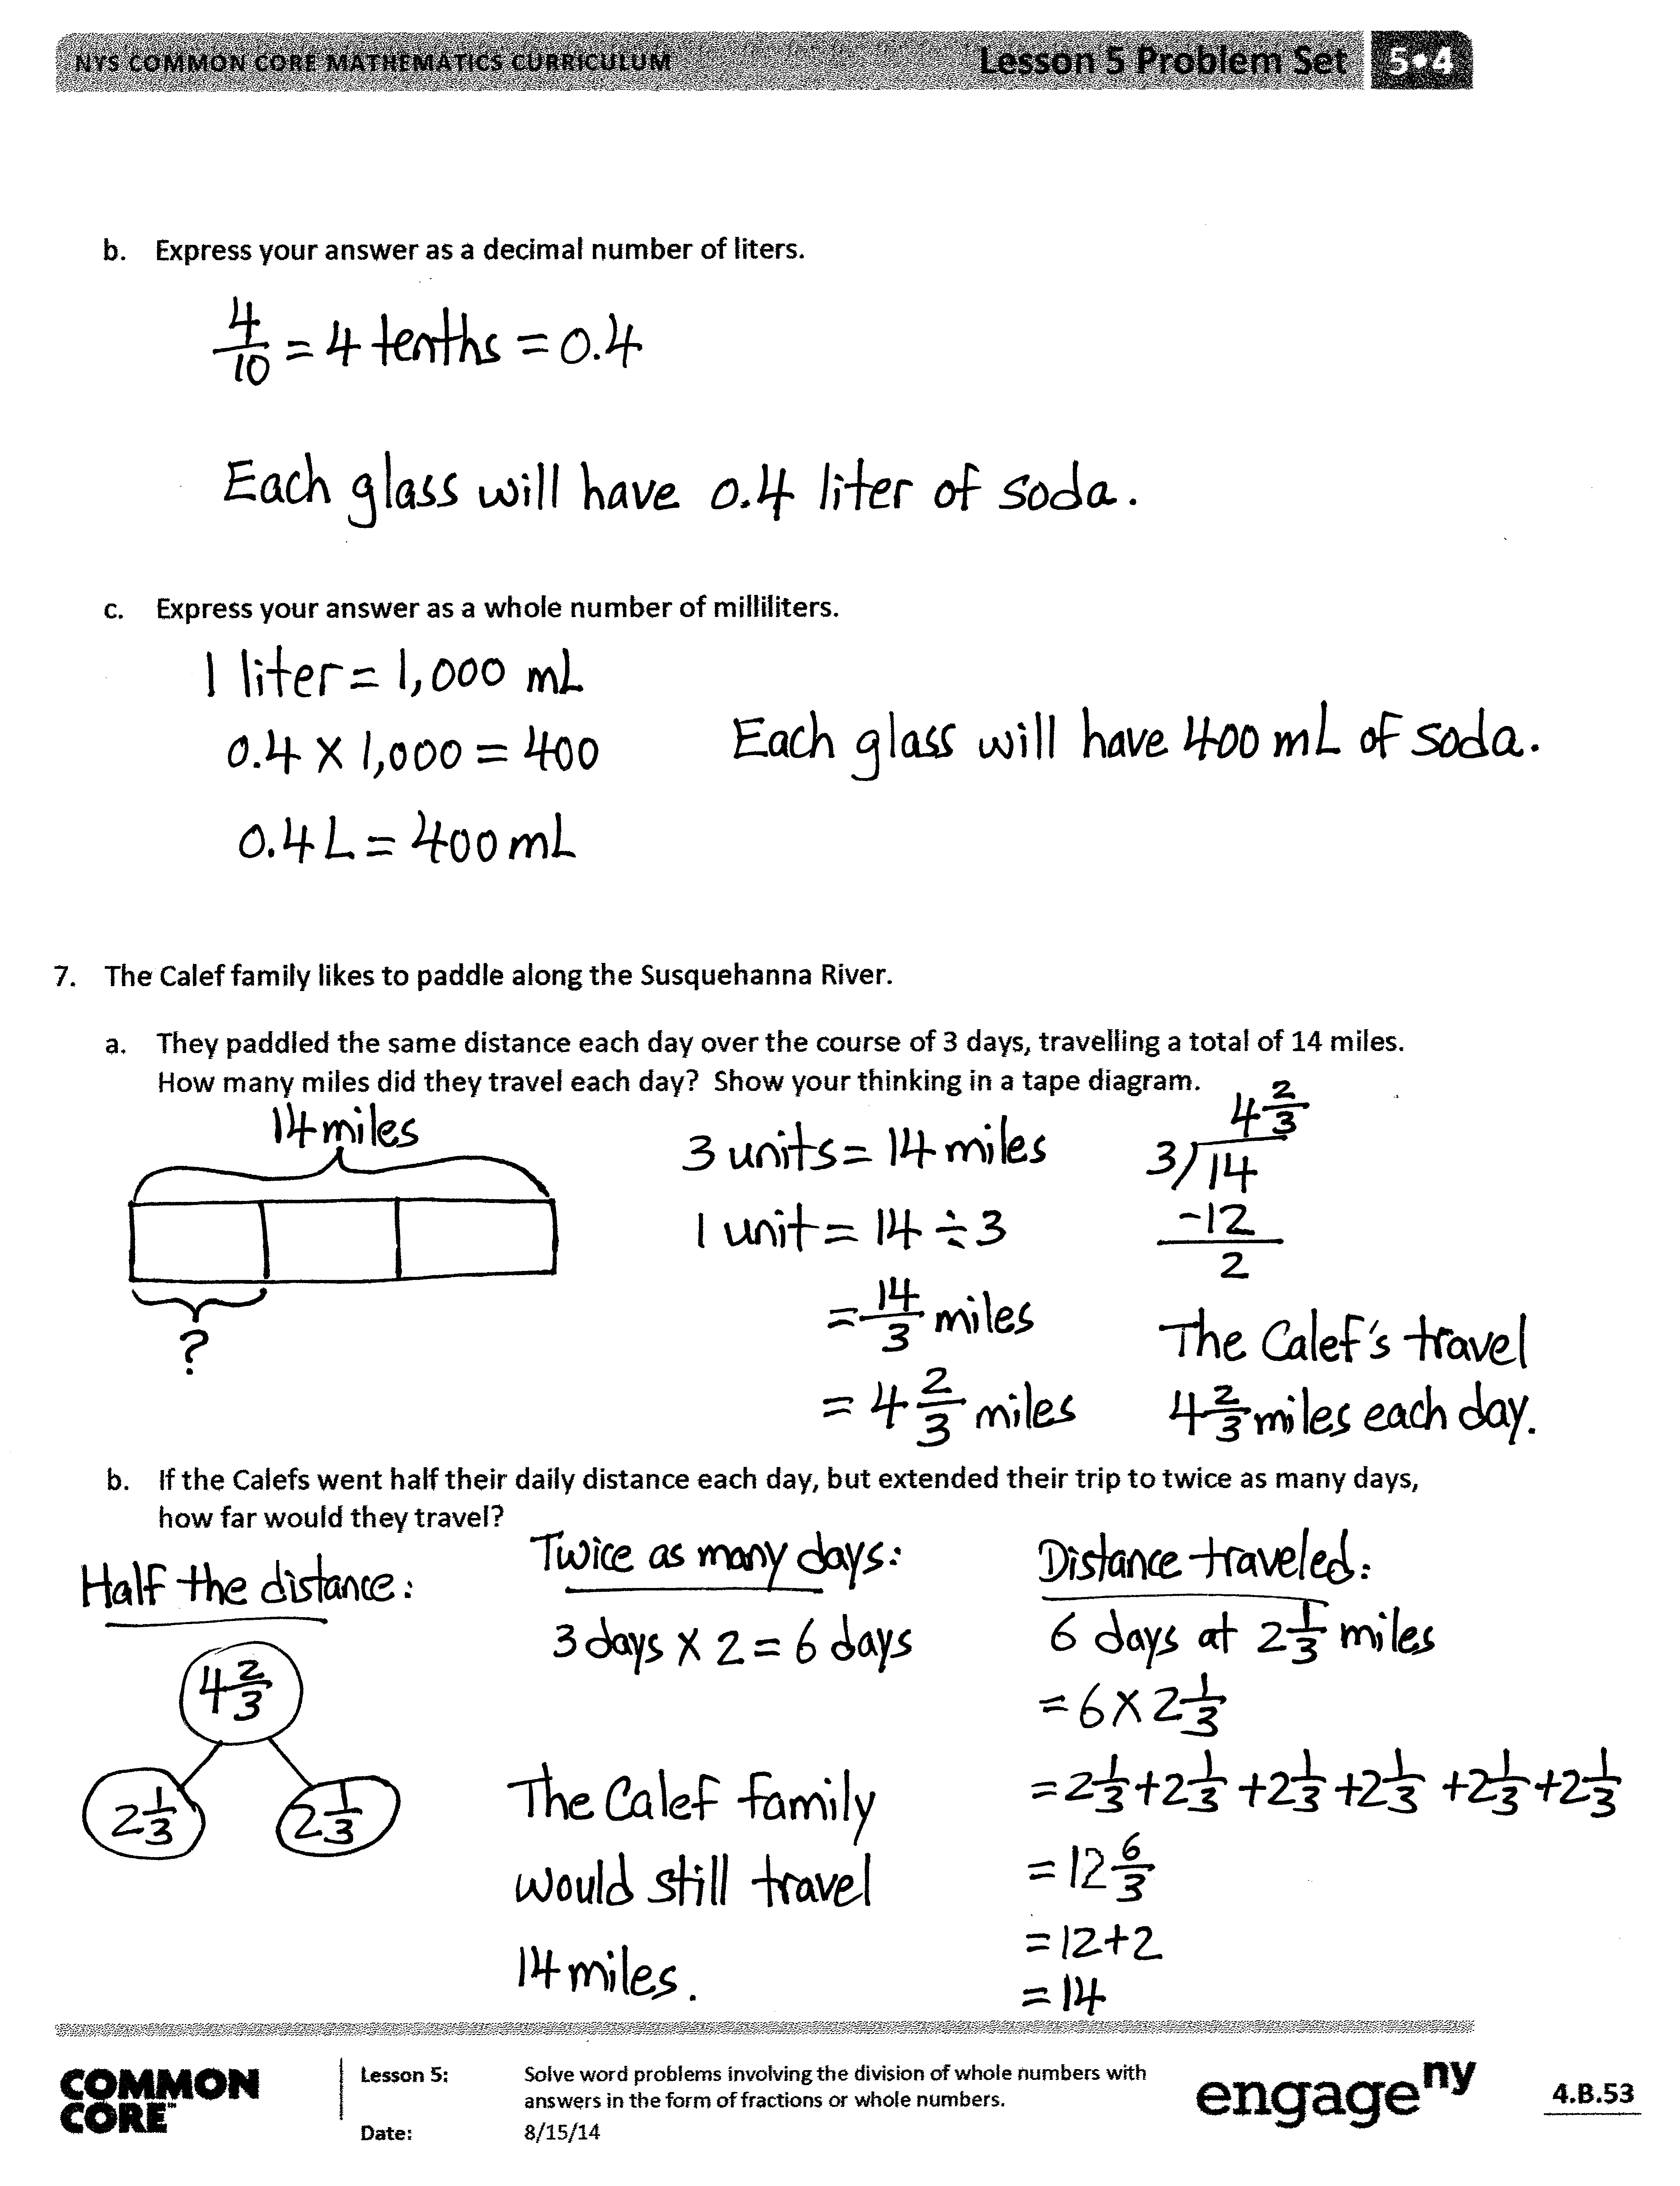 NYS COMMON CORE MATHEMATICS CURRICULUM Lesson 5 Problem Set 5•4
b. Express your answer as a decimal number of liters.
4/10 = 4 tenths = 0.4
Each glass will have 0.4 liter of soda.
c. Express your answer as a whole number of milliliters.
1 liter = 1,000 mL
0.4 X 1,000 = 400
0.4 L = 400 mL
Each glass will have 400 mL of soda.
7. The Calef family likes to paddle along the Susquehanna River.
a. They paddled the same distance each day over the course of 3 days, travelling a total of 14 miles.
How many miles did they travel each day? Show your thinking in a tape diagram.
14 miles
?
3 units = 14 miles
1 unit = 14 ÷ 3
= 14/3 miles
= 4 2/3 miles
4 2/3
3)14
-12
2
The Calef's travel
4 2/3 miles each day.
b. If the Calefs went half their daily distance each day, but extended their trip to twice as many days,
how far would they travel?
Half the distance:
4 2/3
2 1/3 2 1/3
Twice as many days:
3 days X 2 = 6 days
The Calef family
would still travel
14 miles.
Distance traveled:
6 days at 2 1/3 miles
= 6 X 2 1/3
= 2 1/3 + 2 1/3 + 2 1/3 + 2 1/3 + 2 1/3 + 2 1/3
= 12 6/3
= 12 + 2
= 14
COMMON
CORE™
Lesson 5: Solve word problems involving the division of whole numbers with
answers in the form of fractions or whole numbers.
Date: 8/15/14
engage ny
4.B.53